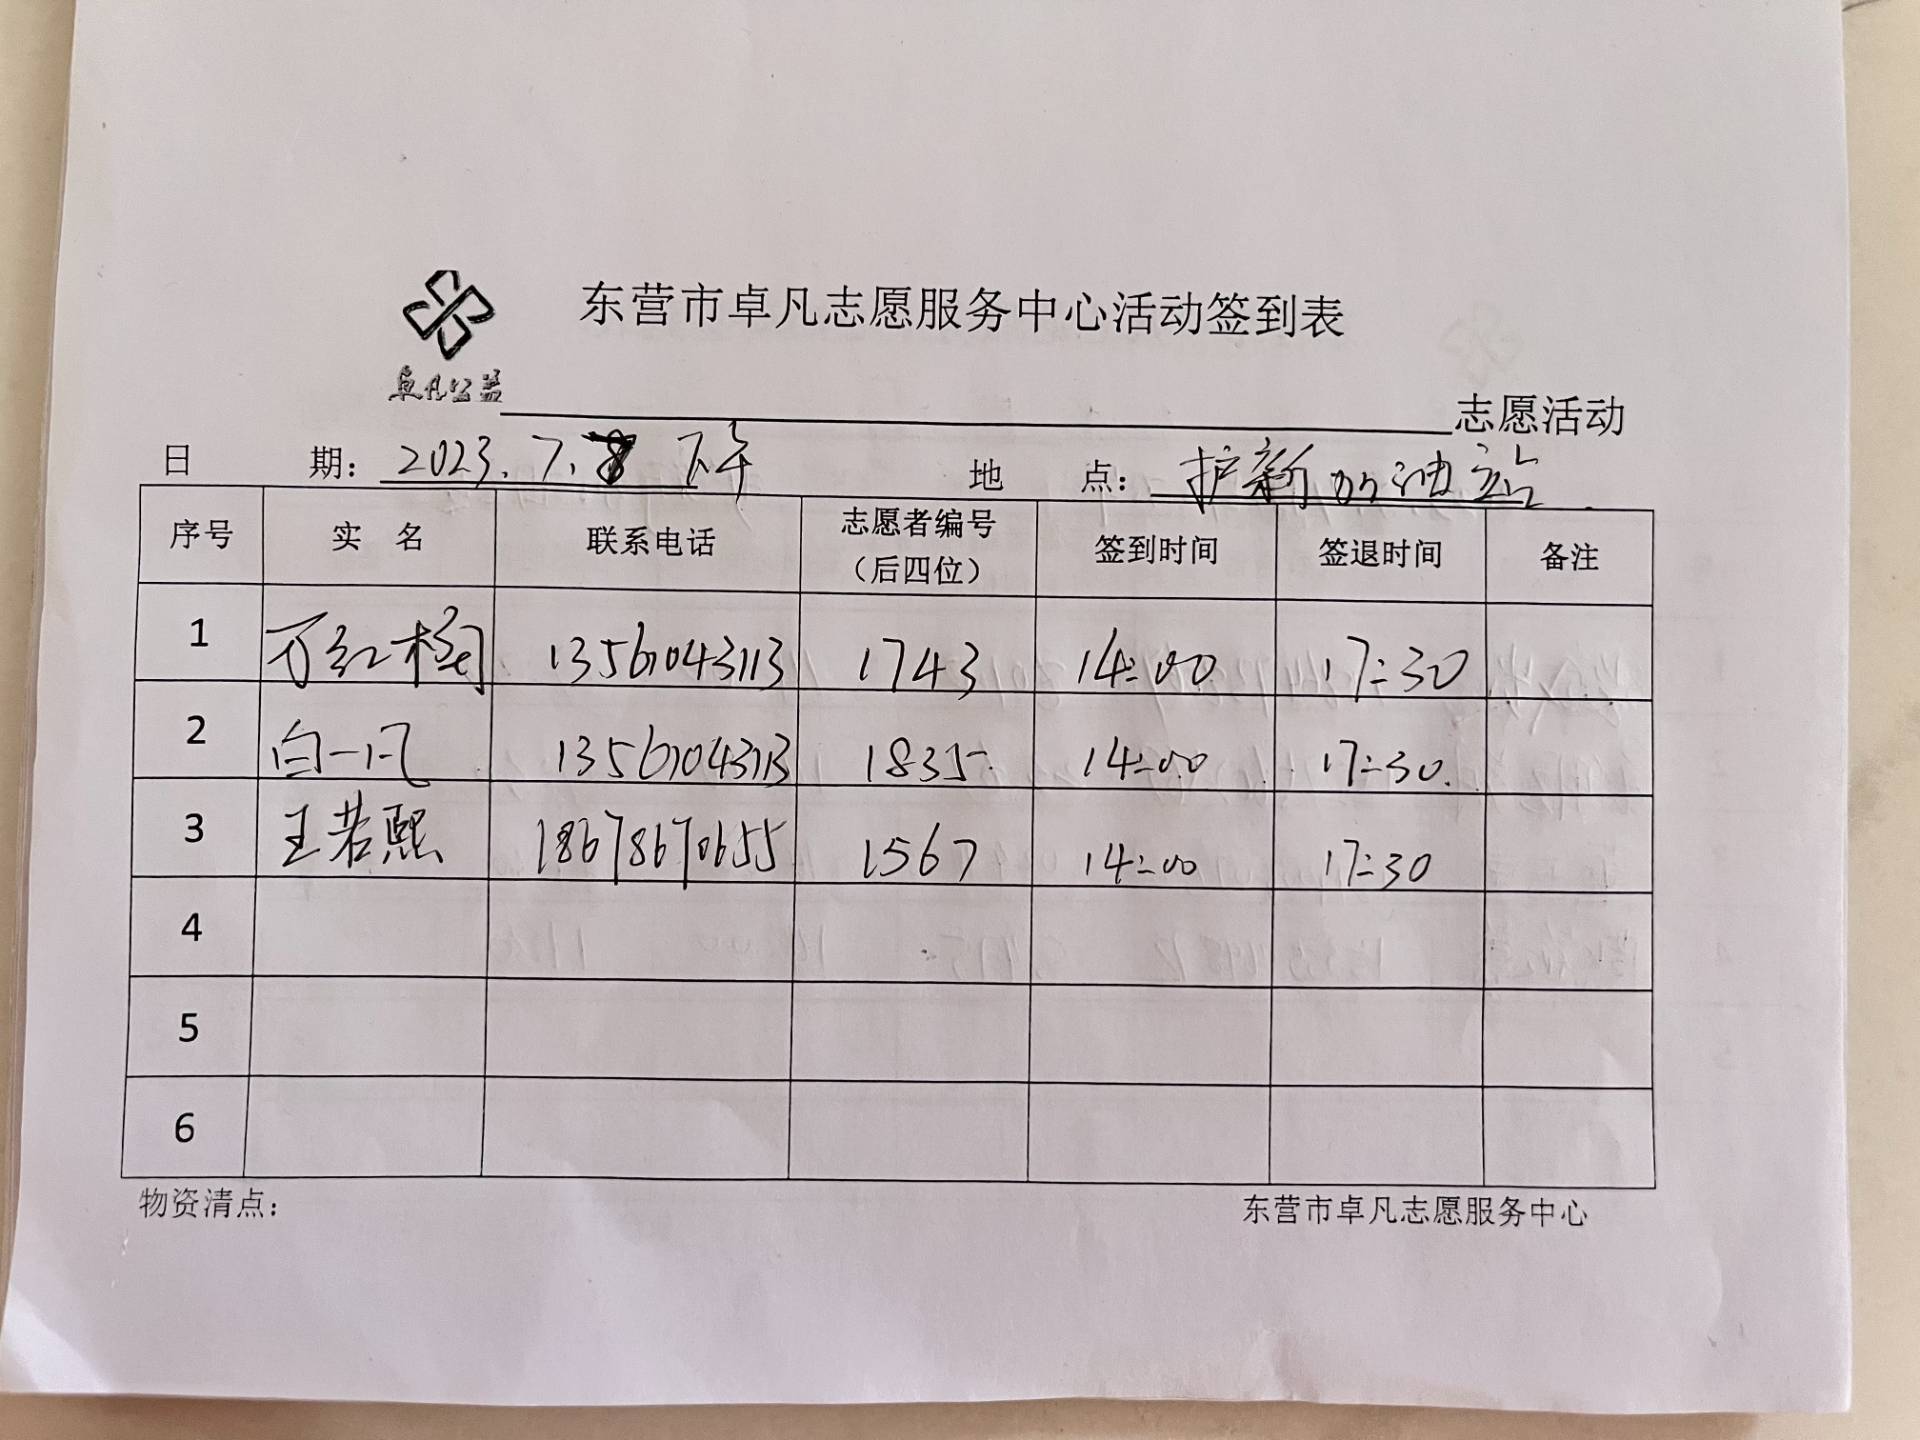 东营市卓凡志愿服务中心活动签到表
卓凡公益
志愿活动
日 期: 2023.7.8 下午 地 点: 护新加油站
序号 实 名 联系电话 志愿者编号（后四位） 签到时间 签退时间 备注
1 万红梅 13561043113 1743 14:00 17:30
2 白一凡 13561043113 1835 14:00 17:30
3 王若熙 18678670655 1567 14:00 17:30
4
5
6
物资清点: 东营市卓凡志愿服务中心